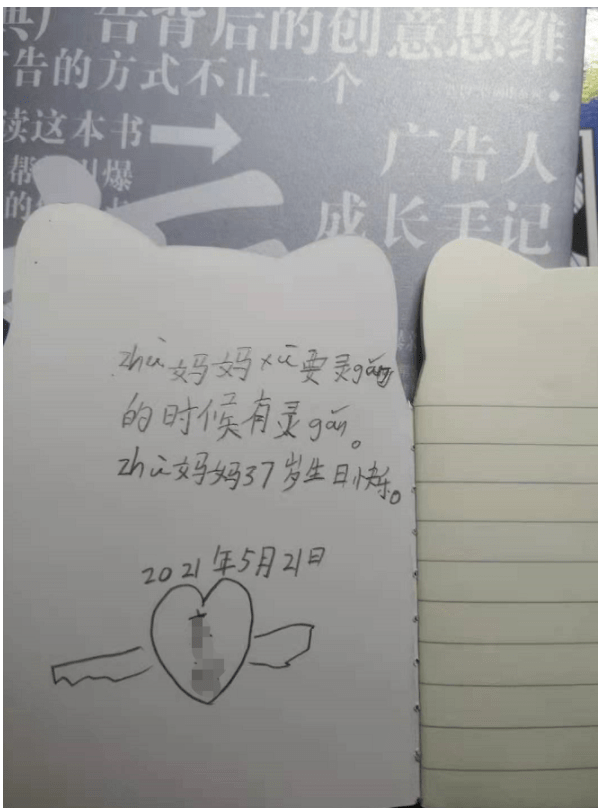 典广告背后的创意思维
广告的方式不止一个
读这本书
广告人
成长手记
zhù妈妈xū要灵gǎn
的时候有灵gǎn。
zhù妈妈37岁生日快乐。
2021年5月21日